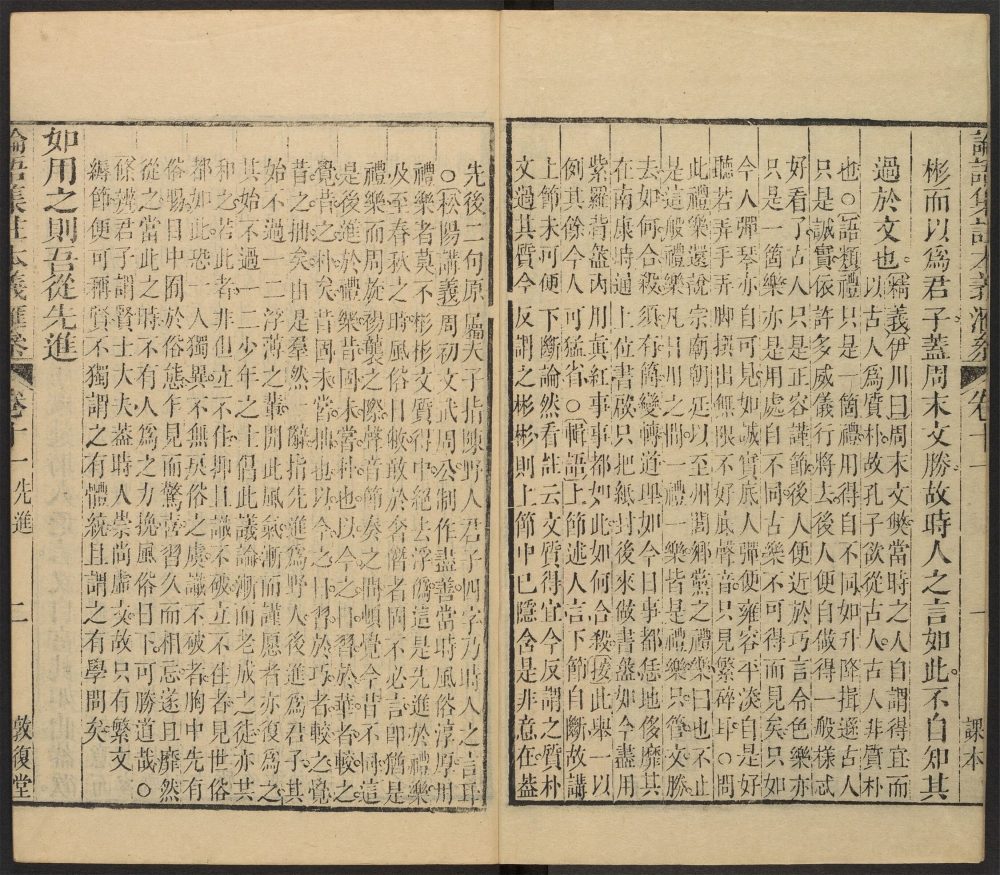 彬而以為君子蓋周末文勝故時人之言如此不自知其
過於文也精義伊川曰周末文弊當時之人自謂得宜而
以古人為質朴故孔子欲從古人古人非質朴
也○語類禮只是一箇禮用得自不同如升降揖遜古人
只是誠實依許多威儀行將去後人便自做得一般樣忒
好看了古人只是正容謹節後人便近於巧言令色樂亦
只是一箇樂亦是用處自不同古樂不可得而見矣只如
今人彈琴亦自可見如誠實底人彈便雍容平淡自是好
聽若弄手弄腳撰出無限不好底聲音只見繁碎耳○問
此禮樂還說宗廟朝廷以至州閭鄉黨之禮樂曰也不止
是這般禮樂凡日用之間一禮一樂皆是禮樂只管文勝
去如何合殺須有箇變轉道理如今日事都恁地侈靡其
在南康時通上位書啟只把紙封後來做書盝如今盡用
紫羅背盝內用真紅事事都如此如何合殺按此舉一以
例其餘今人可猛省○輯語上節述人言下節自斷故講
上節未可下斷論然看註云文質得宜今反謂之質朴
文過其質今反謂之彬彬則上節中已隱含是非意在蓋
論語集註本義匯參
卷十一
一
課本
先後二句原屬夫子指陳野人君子四字乃時人之言耳
○松陽講義周初文武周公制作盡善當時風俗淳厚用
禮樂者莫不彬彬文質得中絕去浮偽這是先進於禮樂
及至春秋之時風俗日敝敢於奢僭者固不必言即猶是
禮樂而周旋裼襲之際聲音節奏之間頓覺今昔不同這
是後進於禮樂昔固未嘗朴也以今之日習於華者較之
覺昔之朴矣昔固未嘗拙也以今之日習於巧者較之覺
昔之拙矣由是羣然一辭指先進為野人後進為君子其
始不過一二浮薄之輩以此風氣漸而謹愿者亦復為之
其始不過一二少年之士倡此議論漸而老成之徒亦共
和之若此者非但立不住抑且識不破立不住者見世俗
都如此恐一人獨異不無戾俗之虞識不破者胸中先有
俗腸日中囿於俗態乍見而驚喜習久而相忘遂且靡然
從之當此之時不有人為之力挽風俗日下可勝道哉○
條辨君子謂賢士大夫蓋時人崇尚虛文故只有繁文
縟節便可稱賢不獨謂之有體統且謂之有學問矣
如用之則吾從先進
論語集註本義匯參
卷十一 先進
二
敦復堂